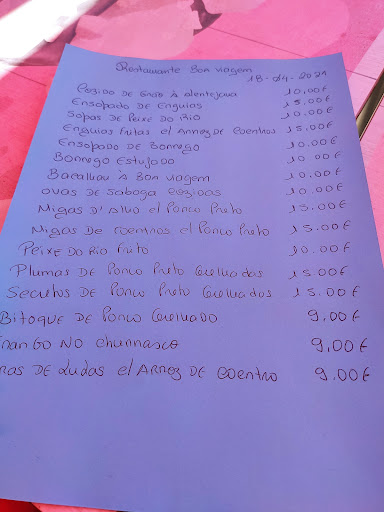 Restaurante Bon viagem
18-04-2021
Cozido de Grão à Alentejana 10,00€
Ensopado DE Enguias 15.00€
Sopas de Peixe Do Rio 10.00€
Enguias Fritas el Arroz DE Coentros 15.00€
Ensopado DE Borrego 10.00€
Borrego Estufado 10.00€
Bacalhau à Bon viagem 10.00€
ovas DE Saboga cozidas 10.00€
Migas D'Alho el Porco Preto 15.00€
Migas DE Coentros el Porco Preto 15.00€
Peixe Do Rio Frito 10.00€
Plumas DE Porco Preto Grelhadas 15.00€
Secretos DE Porco Preto Grelhados 15.00€
Bitoque DE Porco Grelhado 9,00€
Frango NO Churrasco 9,00€
DE Lulas el Arroz DE Coentro 9.00€